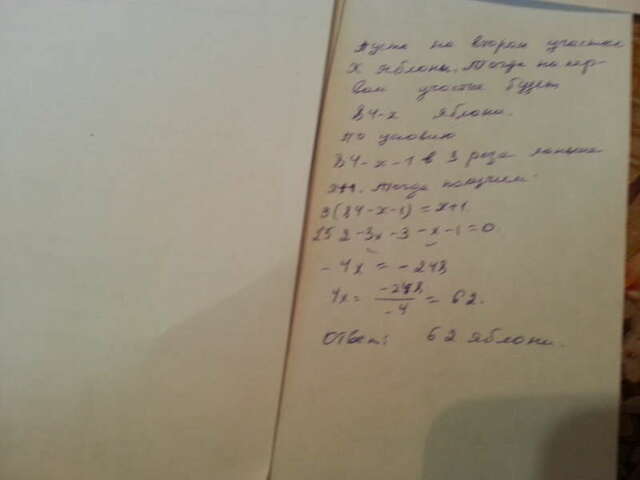 Пусть на втором участке
х яблонь. Тогда на пер-
вом участке будет
84-х яблонь.
По условию
84-х-1 в 3 раза меньше
х+1. Тогда получаем:
3(84-х-1)=х+1.
252-3х-3-х-1=0
-4х=-248
4х= -248/-4 = 62.
Ответ: 62 яблони.